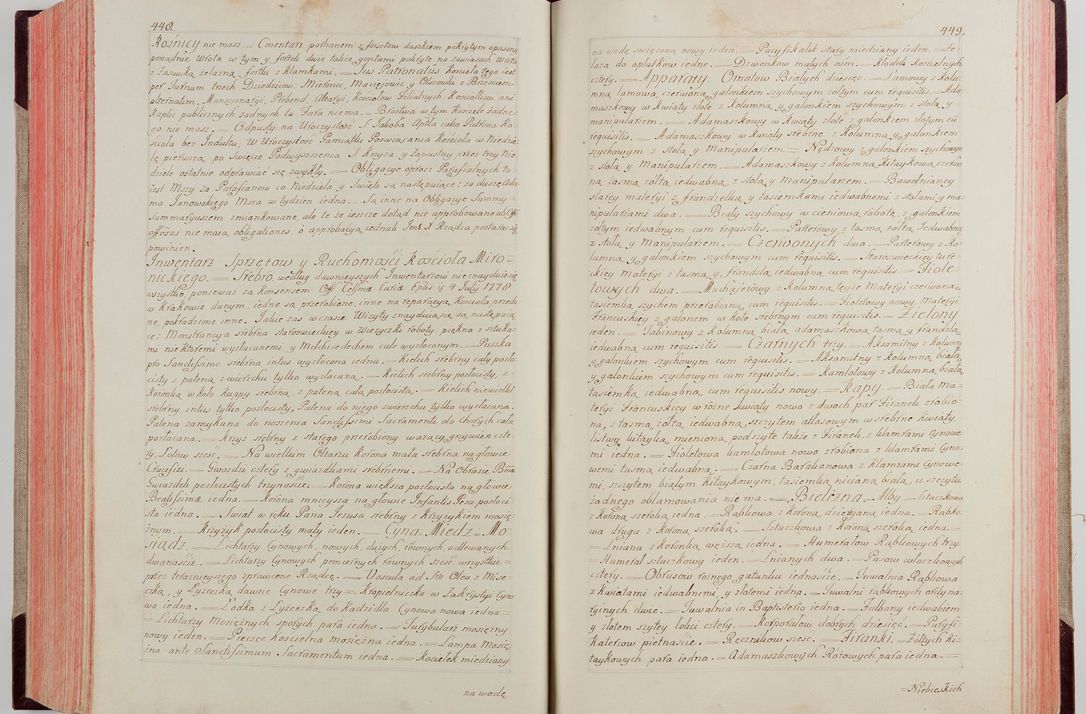 448.
Kosnicy nie masz — Cmentarz parkanem z forsztow daszkiem pokrytym opasany
porządnie Wrota w tym y fortek dwie także gontami pokryte na zawiasach Wrota
z Zasuwką żelazną fortki z Klamkami. — Jus Patronatus Kościoła tego iest
per Turnum trzech Dziedzicow, Mietowic, Macieiowic y Olszowki z Brześciem
alternatim, Mansyonaryi, Prebend, Altaryi, Kościołow filialnych Kościołkow ani
Kaplic publicznych żadnych ta Fara niema. — Bractwa w tym Kościele żadne-
go nie masz. — Odpusty na Uroczystość S. Jakoba Apła iako Patrona Ko-
ścioła bez Indultu, W Uroczystość Pamiątki Poświącania Kościoła w Niedzie-
lę pierwszą po Swięcie Podwyższenia S. Krzyża y Zapustny przez trzy Nie-
dziele ostatnie odprawiać się zwykły. — Obligacye oprocz Parafialnych to
iest Mszy za Parafianow co Niedziela y Swięto są następuiące: za duszę Ada-
ma Janowskiego Msza w tydzien iedna. — Są inne na Obligacye Summy
Summaryuszem zmiankowane, ale te że ieszcze dotąd nie approbowane ab Offo
offosas nie maią obligationes, o approbacyą iednak Jmć X. Rządca postarać się
powinien.
Inwentarz Sprzętow y Ruchomości Kościoła Miro-
nickiego. — Srebro według dawnieyszych Inwentarzow nieznayduie się
wszystko ponieważ za konsensem Off. Celsmæ Curiæ Eplis ię 4 July 1778
w Krakowie danym iedne są przerobione, inne na reparacyą Kościoła przeda-
ne, pokradzione inne. Jakie zaś w czasie Wizyty znayduią się, są następuią-
ce: Monstrancya srebrna staroświeckiey w Wieżyczki roboty piękna z sztuka-
mi niektoremi wyzłacanemi y Melchisedechem cale wyzłoconym. — Puszka
pro Sanctissimo srebrna intus wyzłocona iedna. — Kielich srebrny cały pozło-
cisty z pateną z wierzchu tylko wyzłacaną. — Kielich srebrny pozłocisty, z
Koronką w koło kuppy srebrną, z pateną całą pozłocistą. — Kielich niewielki
srebrny intus tylko pozłocisty, Patena do niego zwierzchu tylko wyzłacana.
Patena zamykana do noszenia Sanctissimi Sacramenti do Chorych cała
pozłacana. — Krzyż srebrny z starego przerobiony ważący grzywien czte-
ry, Łotow sześć. — Na wielkim Ołtarzu Korona mała srebrna na głowie
Crucifixi. — Gwozdzi cztery z gwiazdkami srebrnemi. — Na Obrazie Bmæ
Gwiazdek pozłocistych trzynaście. — Korona większa pozłocista na głowie
Beatissimæ iedna. — Korona mnieysza na głowie Infantis Jesu pozłoci-
sta iedna. — Swiat w ręku Pana Jezusa srebrny z Krzyżykiem mosię-
żnym. — Krzyżyk pozłocisty mały ieden. — Cyna Miedz Mo-
siądz. — Lichtarzy Cynowych, nowych, dużych, rownych, odlewanych
dwanaście. — Lichtarzy Cynowych pomieinych rownych sześć wszystkie
przez teraznieyszego sprawione Rządcę. — Vascula ad Sta Olea z Mise-
czką y Łyżeczką dawne Cynowe trzy. — Kropielniczka w Zakrystyi Cyno-
wa iedna. — Łodka z Łyżeczką do Kadzidła Cynowa nowa iedna. —
— Lichtarzy Mosiężnych sporych para iedna. — Turybularz mosiężny
nowy ieden. — Pieczęć kościelna mosiężna iedna. — Lampa Mosię-
żna ante Sanctissimum Sacramentum iedna. — Kociełek miedziany
na wodę
449.
na wodę święconą nowy ieden. — Pacyfikalik stary miedziany ieden. — Że-
laza do opłatkow iedne. — Dzwonkow małych osm. — Kłodek Kościelnych
cztery. — Apparaty. Ornatow Białych dziesięć. — Lamowy z kolu-
mną lamową czerwoną, galonkiem szychowym żołtym cum requisitis. — Ada-
maszkowy w kwiaty złote z kolumną y galonkiem szychowym z stołą y
manipularzem. — Adamaszkowy w kwiaty złote z galonkiem złotym cū
requisitis. — Adamaszkowy w kwiaty srebrne, z kolumną y galonkiem
szychowym z stołą y Manipularzem. — Nędzowy z galonkiem szychowym
z stołą y Manipularzem. — Adamaszkowy z kolumną kitaykową czerwo-
ną tasmą żołtą iedwabną, z stołą y manipularzem. — Bawełniancy
starey materyi z frandzelką y tasiemkami iedwabnemi z stołami y ma-
nipularzami dwa. — Biały szychowy w cieniową robotę, z galonkiem
żołtym iedwabnym cum requisitis. — Parterowy z tasmą żołtą Jedwabną
z stołą y Manipularzem. — Czerwonych dwa. — Parterowy z ko-
lumną y galonkiem szychowym cum requisitis. — Staroswieckiey ture-
ckiey materyi z tasmą y frandzlą iedwabną cum requisitis. — Fiole-
towych dwa. — Muchaierowy z Kolumną teyże Materyi czerwoną,
tasiemką szychem przerabianą cum requisitis. — Fioletowy nowy, Materyi
Francuskiey z galonem w koło srebrnym cum requisitis. — Zielony
ieden. — Tabinowy z kolumną białą adamaszkową tasmą y frandzlą
iedwabną cum requisitis. — Czarnych trzy. — Aksamitny z kolumną
y galonkiem szychowym cum requisitis. — Aksamitny z kolumną białą,
y galonkiem szychowym cum requisitis. — Kamlotowy z kolumną białą
tasiemką iedwabną, cum requisitis nowy. — Kapy. — Biała ma-
teryi Francuskiey w rożne kwiaty nowo z dwoch par Firanek zrobio-
na, z tasmą żołtą iedwabną, szczytem atłasowym w srebrne kwiaty,
listwy kitayką mienioną podszyte także z Firanek, z klamrami Cynowe-
mi iedna. — Fioletowa kamlotowa nowo zrobiona z klamrami Cyno-
wemi tasmą iedwabną. — Czarna Barakanowa z klamrami Cynowe-
mi, szczytem białym kitaykowym, tasiemką nicianą białą, u szczytu
żadnego oblamowania nie ma. — Bielizna. Alby. — Sztuczkowa
z koroną szeroką iedna. — Rąbkowa z koroną, dziergana iedna. — Rąbko-
wa druga z koroną szeroką. — Sztuczkowa z koroną szeroką iedna. —
— Lniana z koronką węższą iedna. — Humerałow Rąbkowych trzy.
— Humerał sztuczkowy ieden. — Lnianych dwa. — Pasow włoczkowych
cztery. — Obrusow rożnego gatunku iednaście. — Tuwalnia Rąbkowa
z kwiatami iedwabnemi, y złotemi iedna. — Tuwalni rąbkowych ordyna-
ryinych dwie. — Tuwalnia in Baptisterio iedna. — Falbany iedwabiem
y złotem szytey łokci cztery. — Korporałow dobrych dziesięć. — Puryfi-
katerzow piętnaście. — Ręcznikow sześć. — Firanki. — Żołtych ki-
taykowych para iedna. — Adamaszkowych Rożowych para iedna. —
— Niebieskich